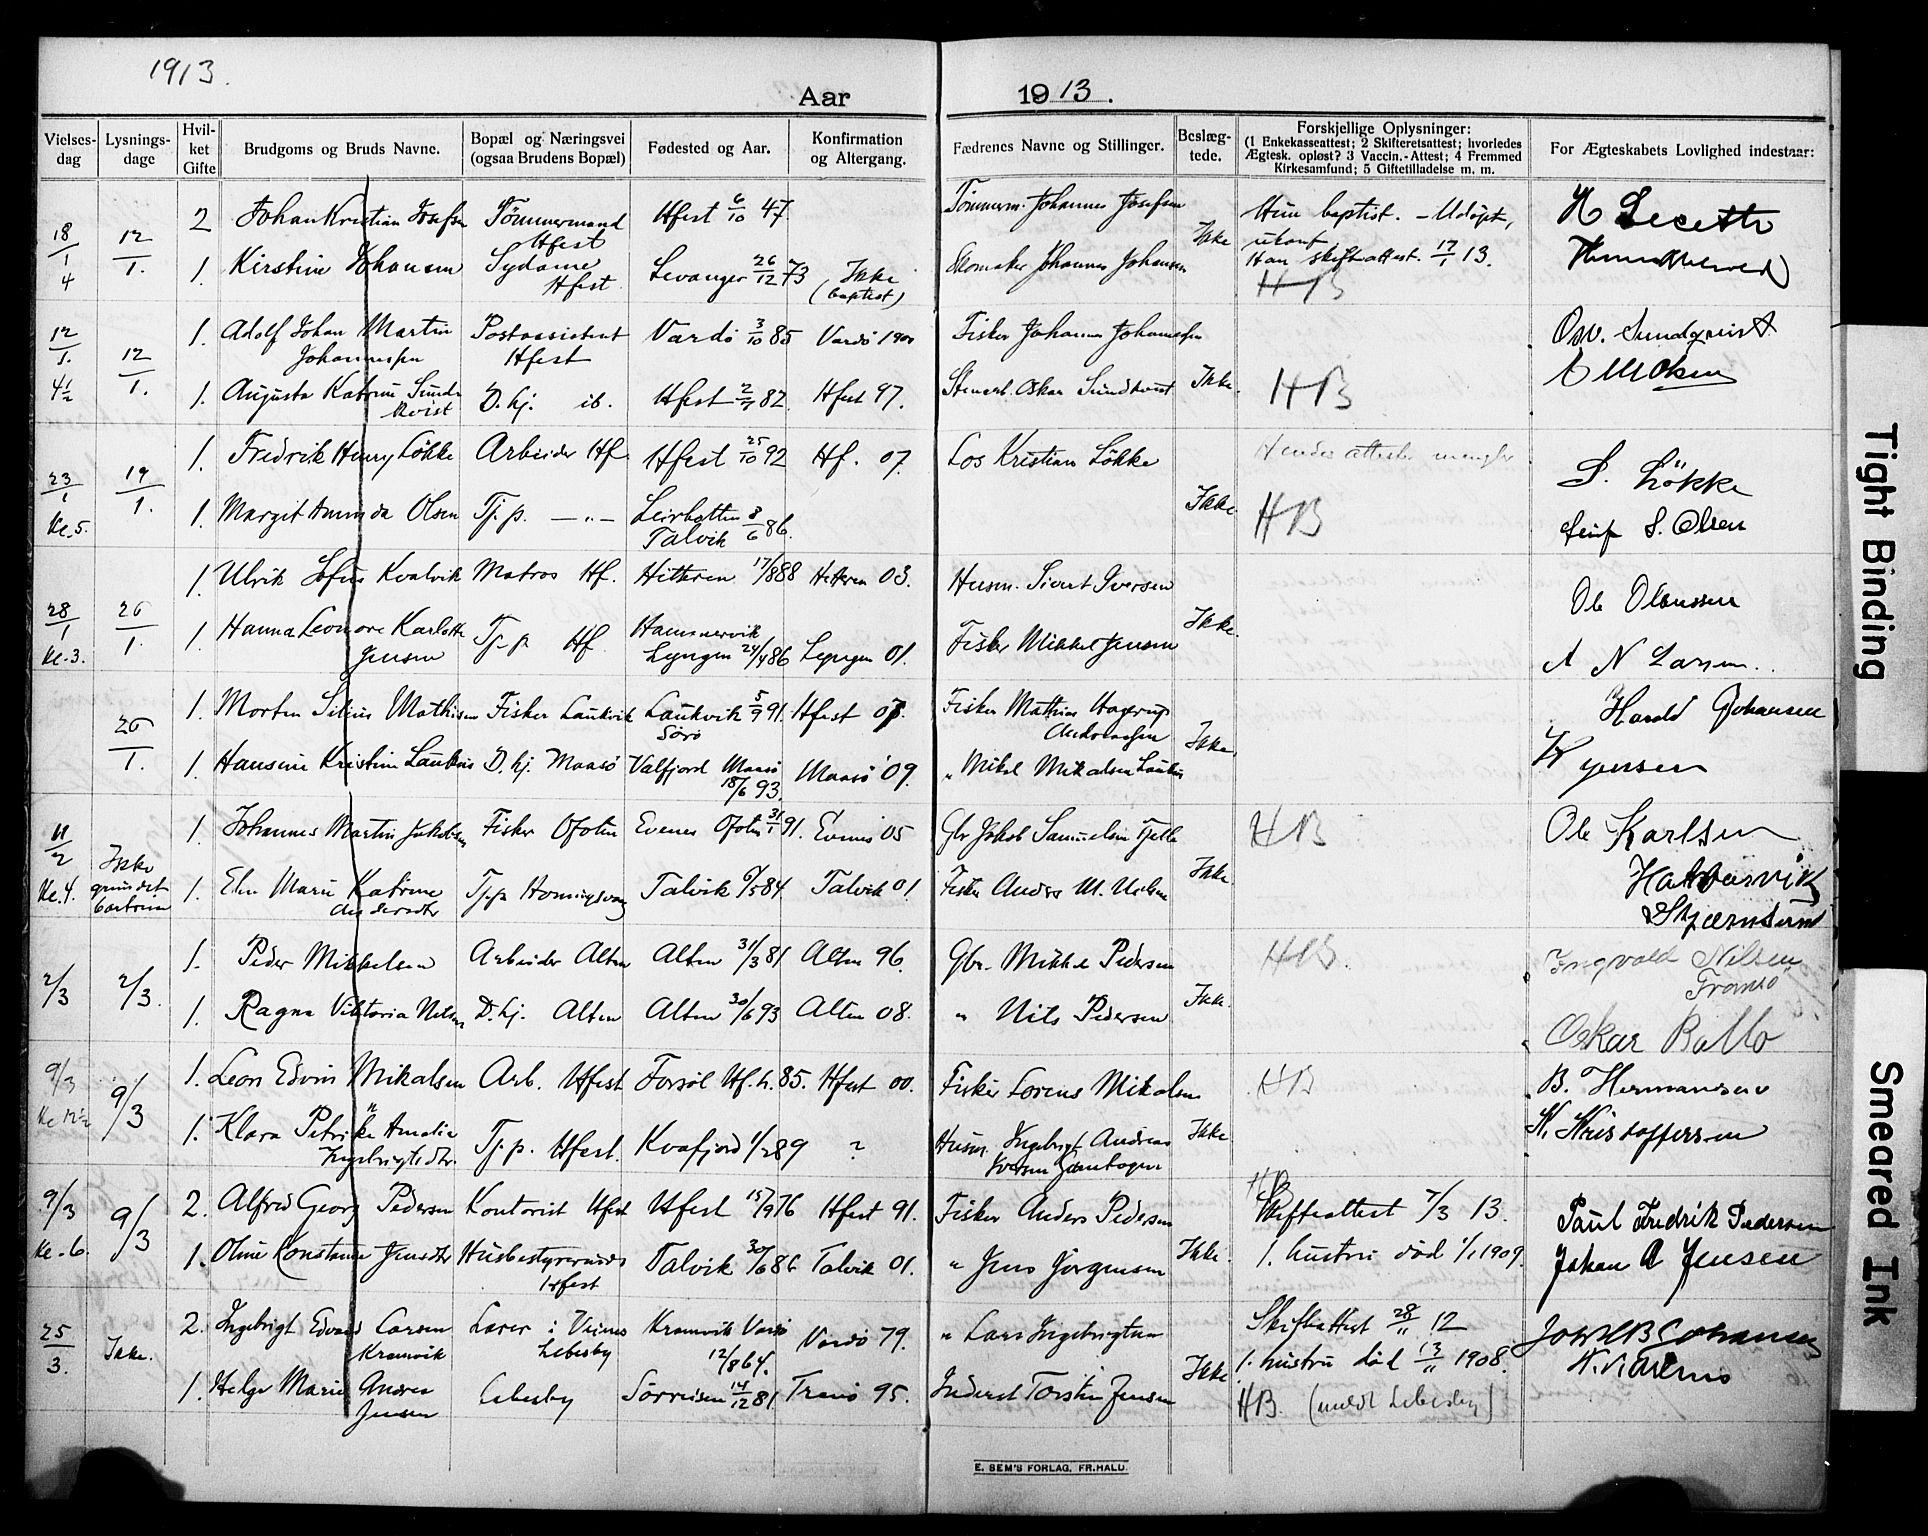 1913.
Aar 1913.
Vielses-dag
Lysnings-dage
Hvil-ket Gifte
Brudgoms og Bruds Navne.
Bopæl og Næringsvei (ogsaa Brudens Bopæl)
Fødested og Aar.
Konfirmation og Altergang.
Fædrenes Navne og Stillinger.
Beslæg-tede.
Forskjellige Oplysninger:
(1 Enkekasseattest; 2 Skifteretsattest; hvorledes
Ægtesk. opløst? 3 Vaccin.-Attest; 4 Fremmed
Kirkesamfund; 5 Giftetilladelse m. m.
For Ægteskabets Lovlighed indestaar:
18/1 4 12/1. 2 Johan Kristian Josefsen Tömmermand Hfest Hfest 6/10 47. Tömmerm. Johannes Josefsen Ikke Hun baptist. – Udöpt, ukonf.
1. Kirstine Johansen Sydame Hfest Levanger 26/12 73 Ikke (baptist) Skomaker Johannes Johansen Han skifteattest. 17/1 13. HB
12/1. 4½ 12/1. 1. Adolf Johan Martin Johannessen Postassistent Hfest Vardö 3/10 85 Vardö 1900 Fisker Johannes Johannessen Ikke. HB Osv. Sundqvist
1. Augusta Katrine Sundkvist D. hj. ib. Hfest 82. Hfest 97. Stenarb. Oskar Sundkvist
23/1 Kl. 5. 19/1. 1. Fredrik Henry Lökke Arbeider Hf. Hfest 25/10 92 Hf. 07. Los Kristian Lökke Ikke Hendes attester mangler S. Lökke
1. Margit Aminda Olsen Tj.p. — " — Leirbotten Talvik 8/6 86. HB S. Olsen
28/1 Kl. 3. 26/1. 1. Ulrik Sofus Kvalvik Matros Hf. Hitteren 17/8 88 Hitteren 03. Husm. Sivert Iversen Ikke. Ole Olaussen
1. Hanna Leonore Karlotte Jensen Tj. p. Hf. Hamnervik Lyngen 24/4 86 Lyngen 01. Fisker Mikkel Jensen A N Larsen.
26/1. 1. Morten Silius Mathisen Fisker Laukvik Laukvik Sörö 5/9 91. Hfest 07. Fisker Mathias Hagerup Andreassen Ikke. Harald Johansen
1. Hansine Kristine Laukins D. hj. Maasö Valfjord Maasö 18/6 93. Maasö 09. " Mikal Mikalsen H Jensen
11/2 Kl. 4. Ikke grundet baatrein 1. Johannes Martin Jakobsen Fisker Ofoten Evenes Ofoten 31/1 91. Evenes 05 Gbr Jakob Samuelsen Ikke HB Ole Karlsen
1. Marie Katrine Tj.p. Honningsvaag Talvik 6/5 84. Talvik 01. Fisker Anders M. Nielsen Stjærnsund
2/3 2/3. 1. Peder Mikkelsen Arbeider Alten Alten 31/3 81 Alten 96. Gbr. Mikkel Pedersen Ikke. HB. Ingvald Nilsen Tromsö
1. Ragna Viktoria Nilsen D. hj. Alten Alten 30/6 93 Alten 08. " Nils Pedersen Oskar Ballo
9/3 9/3 1. Leon Edvin Mikalsen Arb. Hfest Forsöl Hf. h. 85. Hfest 00. Fisker Lorens Mikalsen Ikke HB B. Hermansen
1. Klara Petrikke Amalie Ingebrigtsdtr. Tj. p. Hfest. Kvæfjord 1/2 89 ? Husm. Ingebrigt Andreas Iversen K. Kristoffersen
9/3 Kl. 6. 9/3 2. Alfred Georg Pedersen Kontorist Hfest Hfest 15/9 76 Hfest 91. Fisker Anders Pedersen Ikke. HB Skifteattest 7/3 13. Paul Fredrik Pedersen
1. Oline Konstanse Jensdtr Husbestyrerinde Hfest Talvik 30/6 86 Talvik 01. " Jens Jörgensen 1. hustru död 1/1 1909. Johan A Jensen
25/3 Ikke. 2. Ingebrigt Edvard Larsen Kramvik Lærer i Veines Lebesby Kramvik Vardö 12/8 64. Vardö 79. " Lars Ingebrigtsen Ikke Skifteattest 28/11 12 Johansen
1. Helga Marie Andrea Jensen Lebesby Sörreisen 14/12 81 Tranö 95. Inderst Torsten Jensen 1. hustru död 13/11 1908.
HB. (meldt Lebesby)
E. SEM'S FORLAG, FR.HALD.
Tight Binding
Smeared Ink